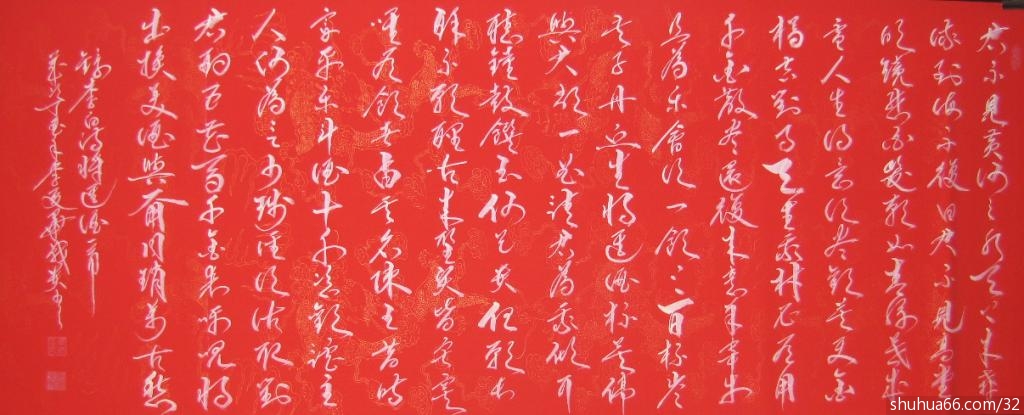 君不見黃河之水天上來奔
流到海不復回君不見高堂
明鏡悲白髮朝如青絲暮成
雪人生得意須盡歡莫使金
樽空對月天生我材必有用
千金散盡還復來烹羊宰牛
且為樂會須一飲三百杯岑
夫子丹丘生將進酒杯莫停
與君歌一曲請君為我傾耳
聽鐘鼓饌玉何足貴但願長
醉不願醒古來聖賢皆寂寞
唯有飲者留其名陳王昔時
宴平樂斗酒十千恣歡謔主
人何為言少錢徑須沽取對
君酌五花馬千金裘呼兒將
出換美酒與爾同銷萬古愁
錄李白將進酒一首
shuhua66.com/32